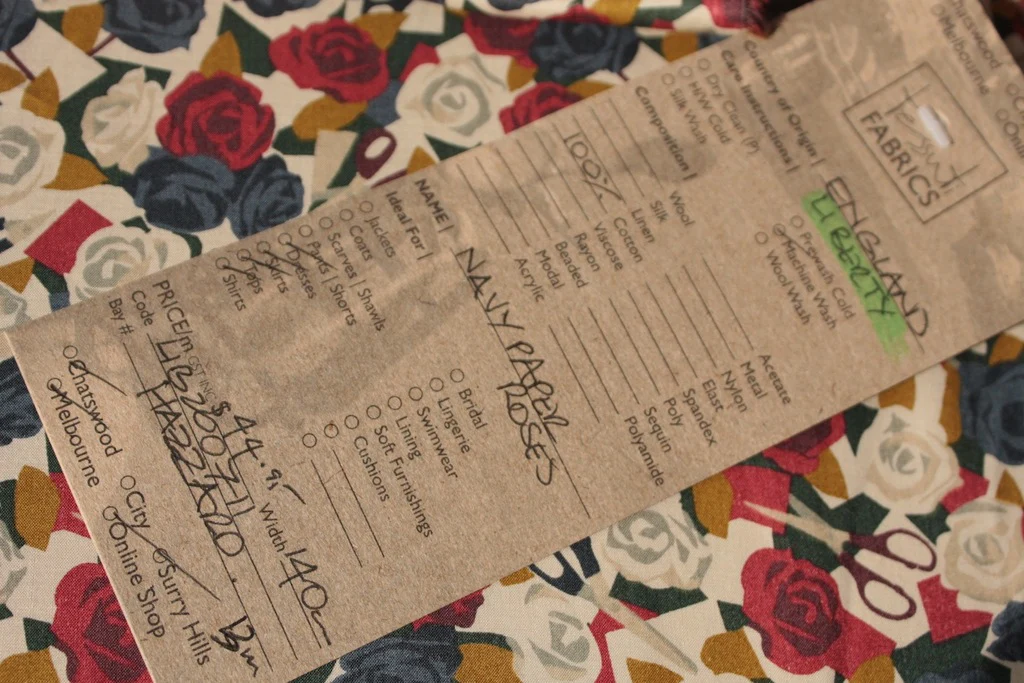 Chatswood
Melbourne
Tessuti
FABRICS
Country of Origin | ENGLAND
LIBERTY
Care Instructions |
Dry Clean (P)
H/W Cold
Silk Wash
Prewash Cold
Machine Wash
Wool Wash
Composition |
Wool
Silk
Linen
100% Cotton
Viscose
Rayon
Beaded
Modal
Acrylic
Acetate
Metal
Nylon
Elast
Spandex
Poly
Sequin
Polyamide
NAME | NAVY PAPER
ROSES
Ideal For |
Jackets
Coats
Scarves | Shawls
Pants | Shorts
Dresses
Skirts
Tops
Shirts
Bridal
Lingerie
Swimwear
Lining
Soft Furnishings
Cushions
PRICE/m GST INC $ 44.95 Width 140
Code
Bay #
Chatswood
Melbourne
City
Surry Hills
Online Shop